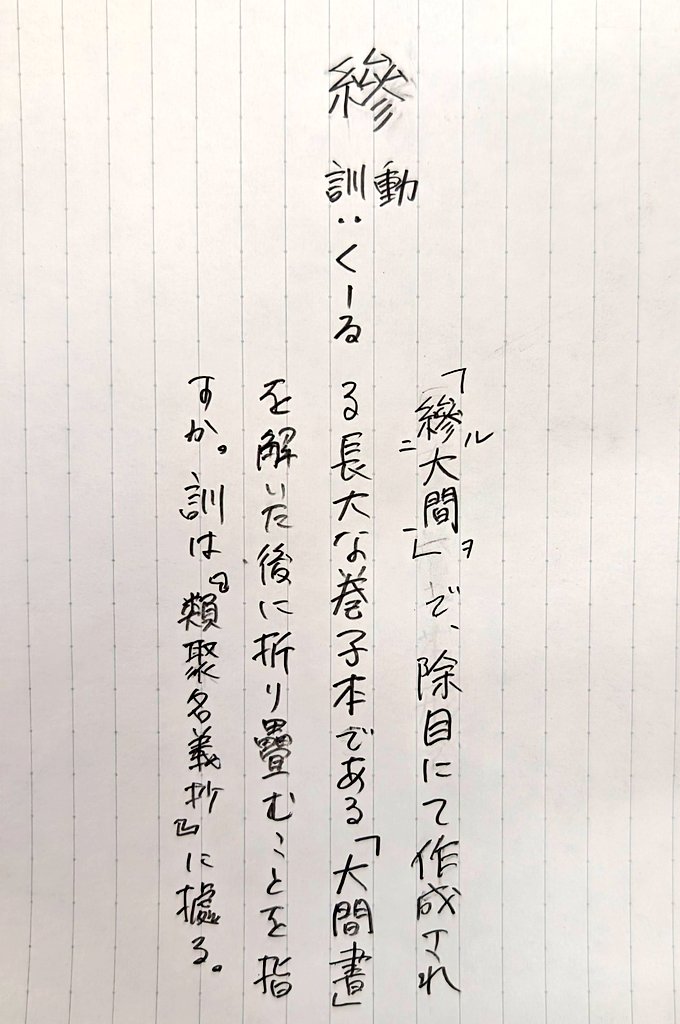 縿
動
訓：くーる
「縿ル二大間ヲ一」で、除目にて作成され
る長大な巻子本である「大間書」
を解いた後に折り疊むことを指
すか。訓は『類聚名義抄』に據る。